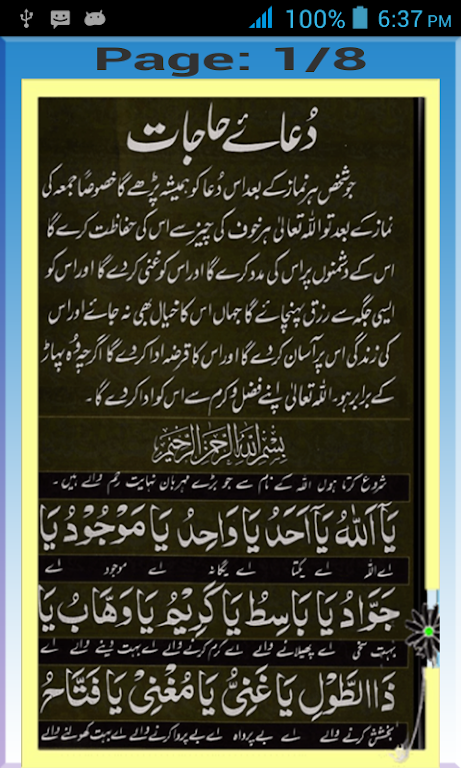 100% 6:37 PM
Page: 1/8
دُعائے حاجات
جو شخص ہر نماز کے بعد اس دُعا کو ہمیشہ پڑھے گا خصوصًا جمعہ کی
نماز کے بعد تو اللہ تعالیٰ ہر خوف کی چیز سے اس کی حفاظت کرے گا
اس کے دشمنوں پر اس کی مدد کرے گا اور اس کو غنی کر دے گا اور اس کو
ایسی جگہ سے رزق پہنچائے گا جہاں اس کا خیال بھی نہ جائے اور اس
کی زندگی اس پر آسان کر دے گا اور اس کا قرضہ ادا کر دے گا اگرچہ وُہ پہاڑ
کے برابر ہو۔ اللہ تعالیٰ اپنے فضل و کرم سے اس کو ادا کر دے گا۔
بِسْمِ اللهِ الرَّحْمٰنِ الرَّحِيْمِ
شروع کرتا ہوں اللہ کے نام سے جو بڑے مہربان نہایت رحم والے ہیں۔
يَآ اَللهُ يَآ اَحَدُ يَا وَاحِدُ يَا مَوْجُوْدُ يَا
اے اللہ اے یکتا اے یگانہ اے موجود اے
جَوَّادُ يَا بَاسِطُ يَا كَرِيْمُ يَا وَهَّابُ يَا
بہت سخی اے پھیلانے والے اے کرم کرنے والے اے بہت دینے والے اے
ذَا الطَّوْلِ يَا غَنِيُّ يَا مُغْنِيْ يَا فَتَّاحُ
بخشش کرنے والے اے بے پرواہ اے بے پروا کرنے والے اے بہت کھولنے والے